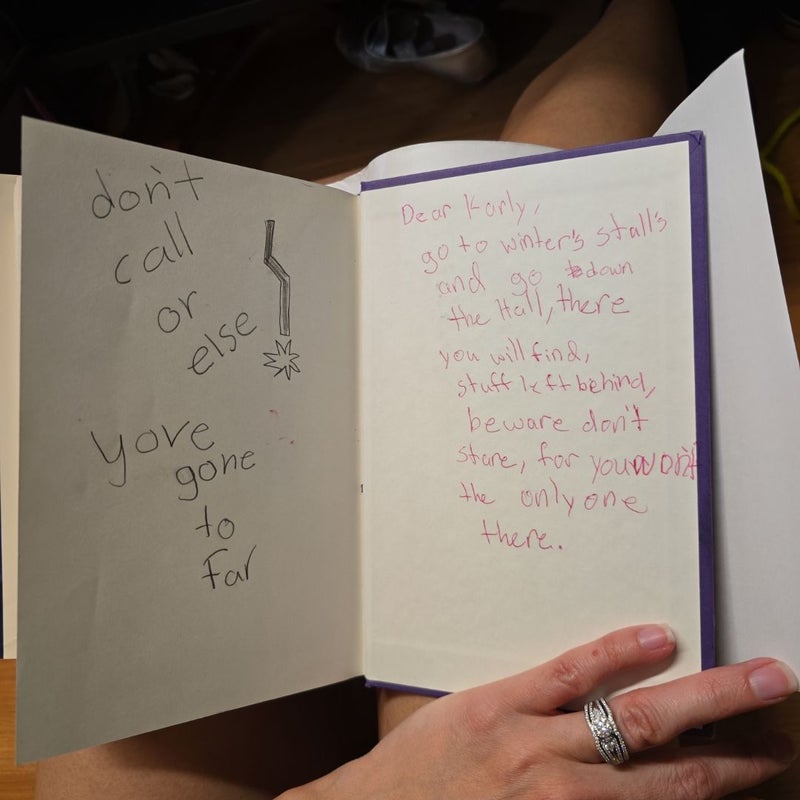 don't
call
or
else
yove
gone
to
Far
Dear Karly,
go to winter's stall's
and go down
the Hall, there
you will find,
stuff left behind,
beware don't
stare, for you won't
the only one
there.